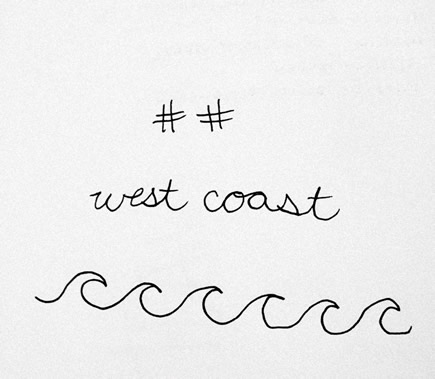 ##
west coast